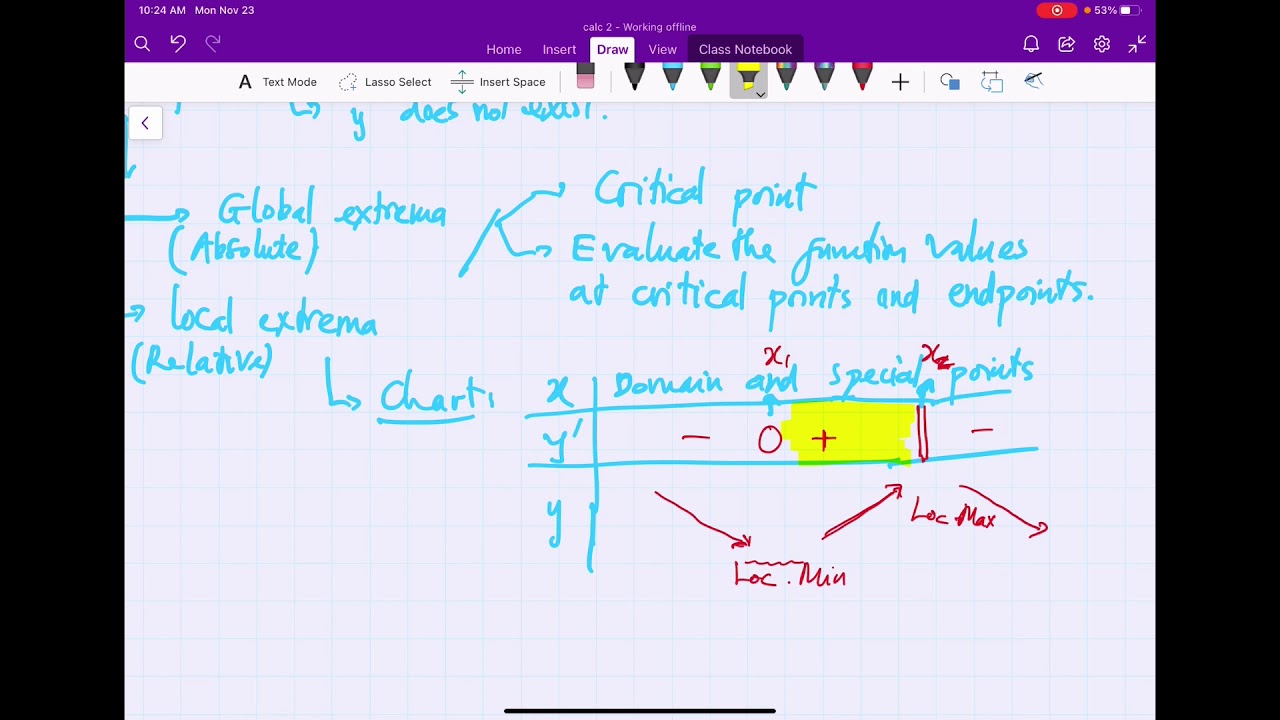 10:24 AM Mon Nov 23
53%
calc 2 - Working offline
Home Insert Draw View Class Notebook
A Text Mode Lasso Select Insert Space
y does not exist.
Global extrema
(Absolute)
Critical point
Evaluate the function values
at critical points and endpoints.
Local extrema
(Relative)
Chart:
x₁ x₂
x Domain and special points
y' − 0 + || −
y
Loc. Max
Loc. Min